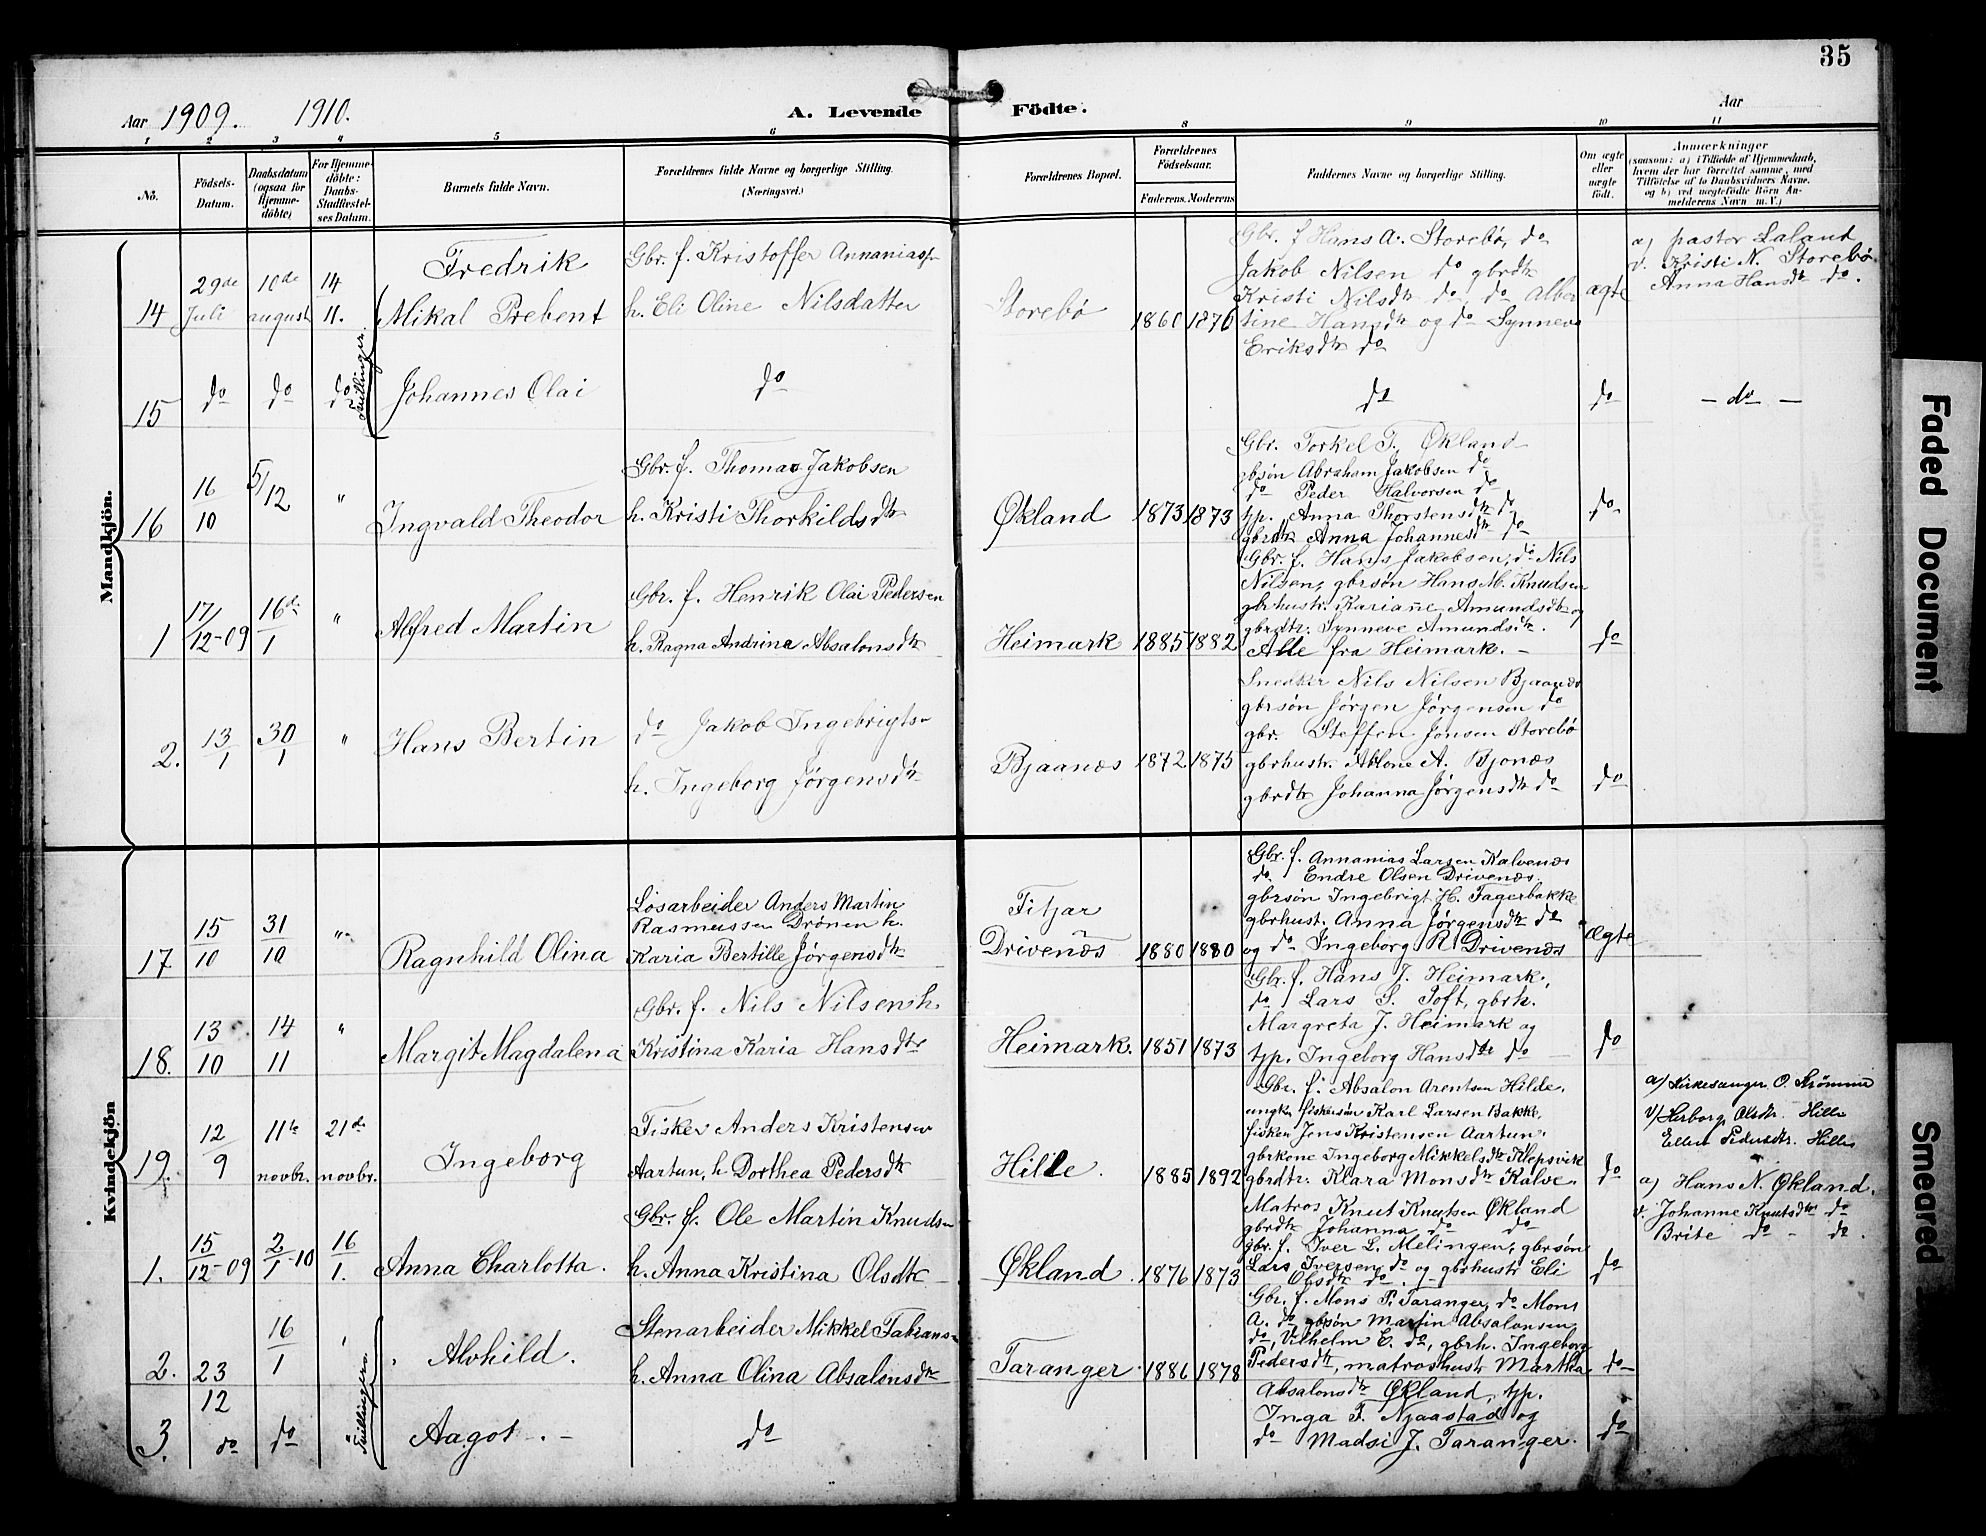 35
Aar 1909. 1910.
A. Levende Födte.
Aar
1 2 3 4 5 6 8 9 10 11
No.
Födsels-Datum.
Daabsdatum (ogsaa for Hjemme-döbte)
For Hjemme-döbte: Daabs-Stadfæstel-ses Datum.
Barnets fulde Navn.
Forældrenes fulde Navne og borgerlige Stilling.
(Næringsvei.)
Forældrenes Bopæl.
Forældrenes Födselsaar.
Faderens. Moderens
Faddernes Navne og borgerlige Stilling.
Om ægte eller uægte födt.
Anmærkninger
(saasom: a) i Tilfælde af Hjemmedaab,
hvem der har forrettet samme, med
Tilföielse af to Daabsvidners Navne.
og b) ved uægtefödte Börn An-
melderens Navn m. V.)
Mandkjön.
14
29de Juli
10de august
14 11.
Fredrik
Mikal Prebent
Gbr. f. Kristoffer Annanias
h. Eli Oline Nilsdatter
Storebø
1860 1870
Gbr. f Hans A. Storebø, do
Jakob Nilsen do gbrdtr
Kristi Nilsdtr do do Alber
tine Hansdtr og do Synneve
Eriksdtr do
ægte
a) pastor Laland
v. Kristi N. Storebø
Anna Hansdtr do.
15
do
do
do
Tvillinger
Johannes Olai
do
do
do
- do -
16
16/10
5/12
"
Ingvald Theodor
Gbr. f. Thomas Jakobsen
h. Kristi Thorkildsdtr
Økland
1873 1873
Gbr. Torkel T. Økland
gbsøn Abraham Jakobsen do
do Peder Halvorsen do
tjp. Anna Thorstensdtr do
gbrdtr Anna Johannesdtr do
do
1
17/12-09
16de/1
"
Alfred Martin
Gbr. f. Henrik Olai Pedersen
h. Ragna Andrine Absalonsdtr
Heimark
1885 1882
Gbr. f. Hans Jakobsen, do Nils
Nilsen, gbrsøn Hans M. Knudsen
gbrhustr. Karianne Amundsdtr og
gbrdtr. Synneve Amundsdtr.
Alle fra Heimark. -
do
2.
13/1
30/1
"
Hans Bertin
do Jakob Ingebrigts
h. Ingeborg Jørgensdtr
Bjaanæs
1872 1875
Snedker Nils Nilsen Bjaanæs
gbrsøn Jørgen Jørgensen do
gbr. Steffen Jonsen Storebø
gbrhustr. Ablone A. Bjonæs
gbrdtr Johanna Jørgensdtr do
do
Kvindekjön
17
15/10
31/10
"
Ragnhild Olina
Løsarbeider Anders Martin
Rasmussen Drønen h.
Karia Bertille Jørgensdtr
Fitjar
Drivenæs
1880 1880
Gbr. f. Annanias Larsen Kalvenæs
do. Endre Olsen Drivenæs.
gbrsøn Ingebrigt H. Fagerbakke
gbrhust. Anna Jørgensdtr do
og do Ingeborg R. Drivenæs
ægte
18.
13/10
14/11
"
Margit Magdalena
Gbr. f. Nils Nilsen h.
Kristina Karia Hansdtr
Heimark.
1851 1873
Gbr. f. Hans J. Heimark,
do Lars S. Toft, gbrh.
Margreta J. Heimark og
tjp. Ingeborg Hansdtr do
do
19.
12/9
11te novbr.
21de novbr.
Ingeborg
Fisker Anders Kristensen
Aartun, h Dorthea Pedersdtr
Hille.
1885 1892
Gbr. f. Absalon Arentsen Hilde,
ungk. fiskersøn Karl Larsen Bakke,
fisker Jens Kristensen Aartun,
gbrkone Ingeborg Mikkelsdtr Klepsvik
gbrdtr. Klara Monsdtr Kalve.
do
a) Kirkesanger O. Strømme
v) Herborg Olsdtr. Hille
Ellen Pedersdtr. Hille
1.
15/12-09
2/1-10
16/1.
Anna Charlotta.
Gbr. f. Ole Martin Knuds
h. Anna Kristina Olsdtr
Økland
1876 1873
Matros Knut Knutsen Økland
gbrdtr Johanna do do
gbr. f. Iver L. Melingen, gbrsøn
Lars Iversen do og gbrhustr Eli
Olsdtr do. -
do
a) Hans N. Økland.
v. Johanne Knutsdtr do
Brite do - do.
2.
23/12
16/1
Tvillinger
Alvhild.
Stenarbeider Mikkel Fabians
h. Anna Olina Absalonsdtr
Taranger
1886 1878
Gbr. f. Mons P. Taranger, do Mons
A. do gbrsøn Martin Absalonsen
do, Vilhelm E. do, gbrh. Ingeborg
Pedersdtr, matroshustr Martha
Absalonsdtr Økland, tjp.
Inga F. Njaastad og
do Madsi J. Taranger.
do
3.
do
do
Aagot -.-
do
do
Faded Document
Smeared